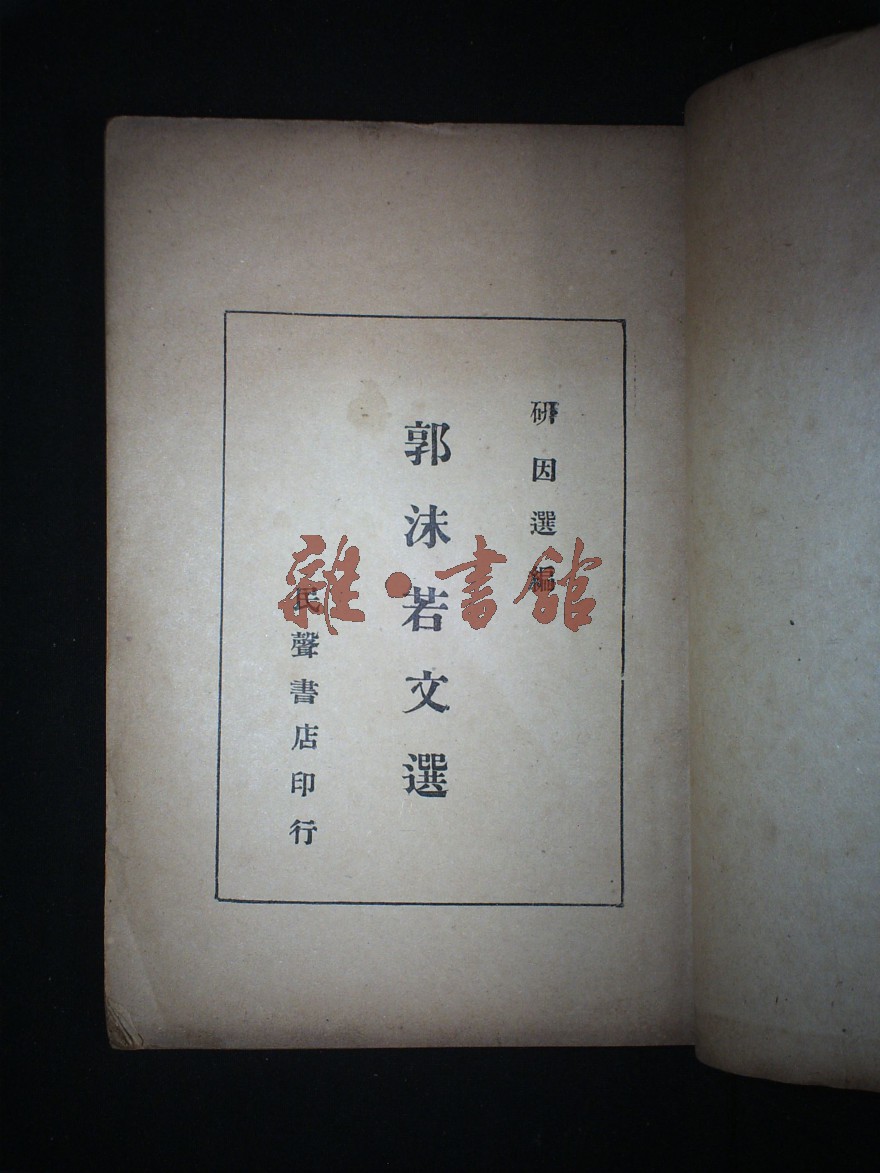 研因選編
郭沫若文選
民聲書店印行
雜·書館